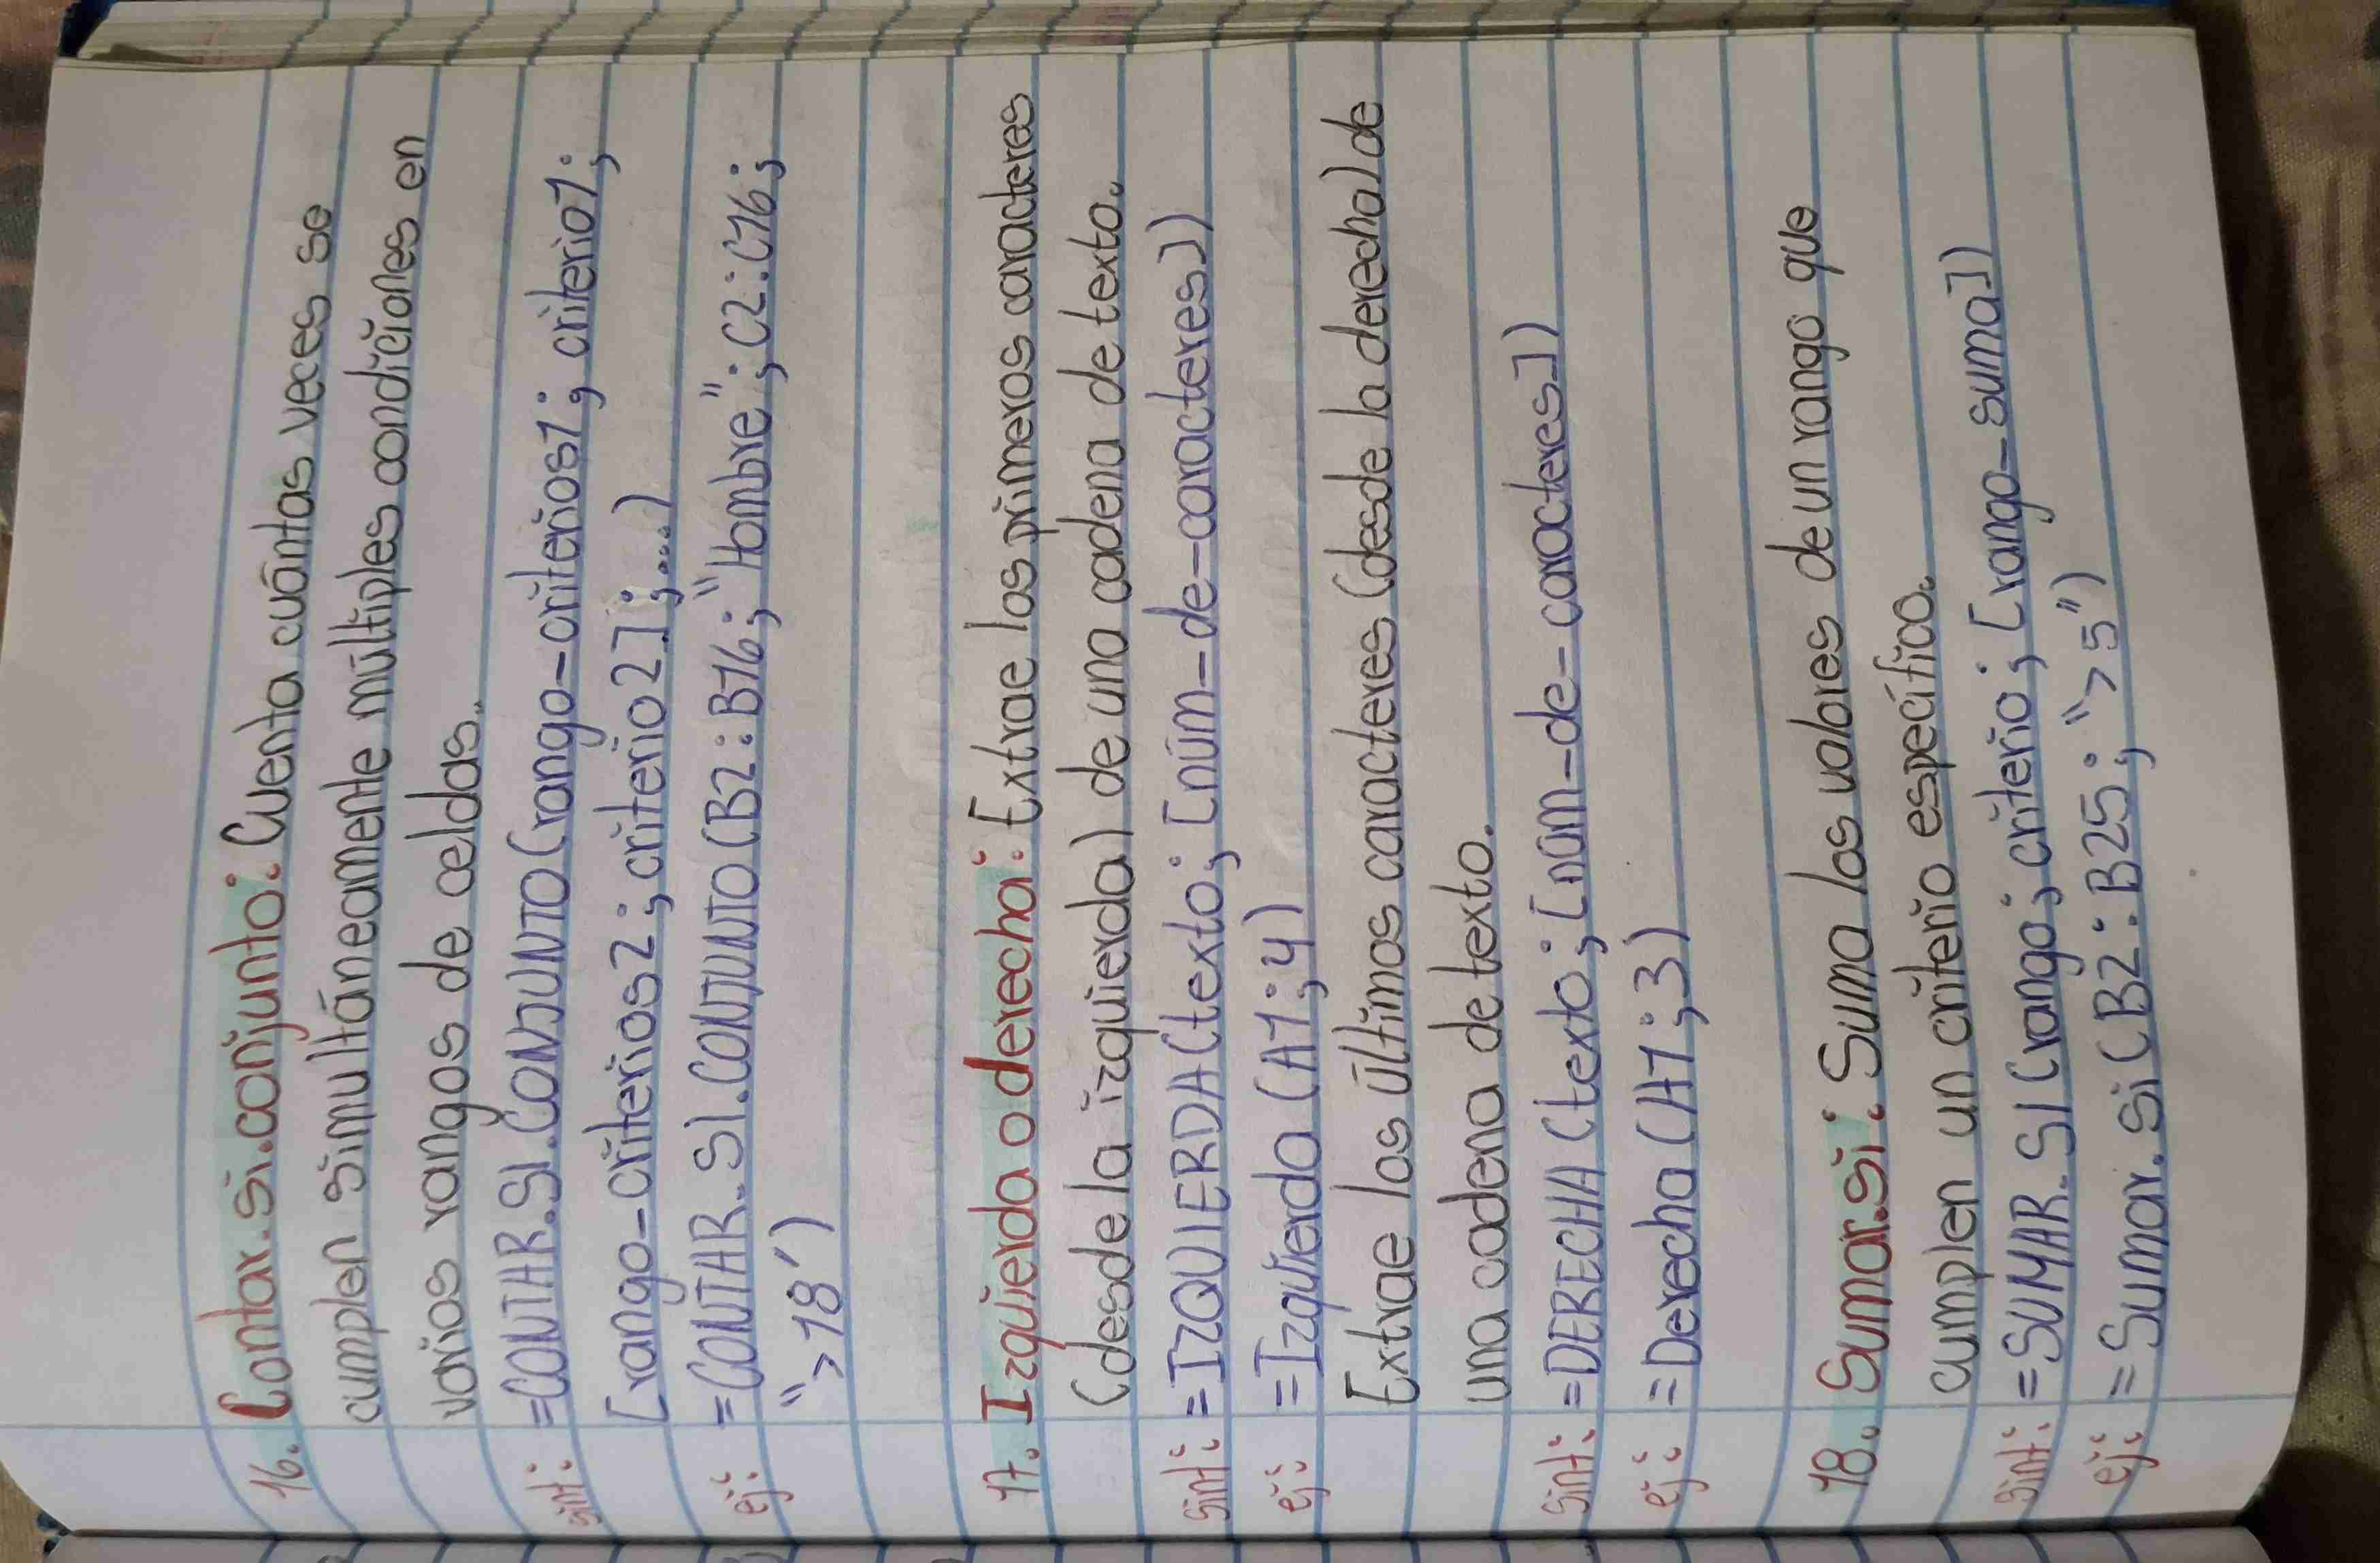 16. Contar.si.conjunto: Cuenta cuántas veces se
cumplen simultáneamente múltiples condiciones en
varios rangos de celdas.
sint: =CONTAR.SI.CONJUNTO(rango-criterios1; criterio1;
[rango-criterios2; criterio2]; ...)
ej: =CONTAR.SI.CONJUNTO(B2:B16; "Hombre"; C2:C16;
">18')
17. Izquierda o derecha: Extrae los primeros caracteres
(desde la izquierda) de una cadena de texto.
sint: =IZQUIERDA(texto; [núm-de-caracteres])
ej: =Izquierda (A1;4)
Extrae los últimos caracteres (desde la derecha) de
una cadena de texto.
sint: =DERECHA (texto; [núm-de-caracteres])
ej: =Derecha (A1;3)
18. Sumar.si: Suma los valores de un rango que
cumplen un criterio específico.
sint: =SUMAR.SI (rango; criterio; [rango-suma])
ej: =Sumar.si (B2:B25; ">5")